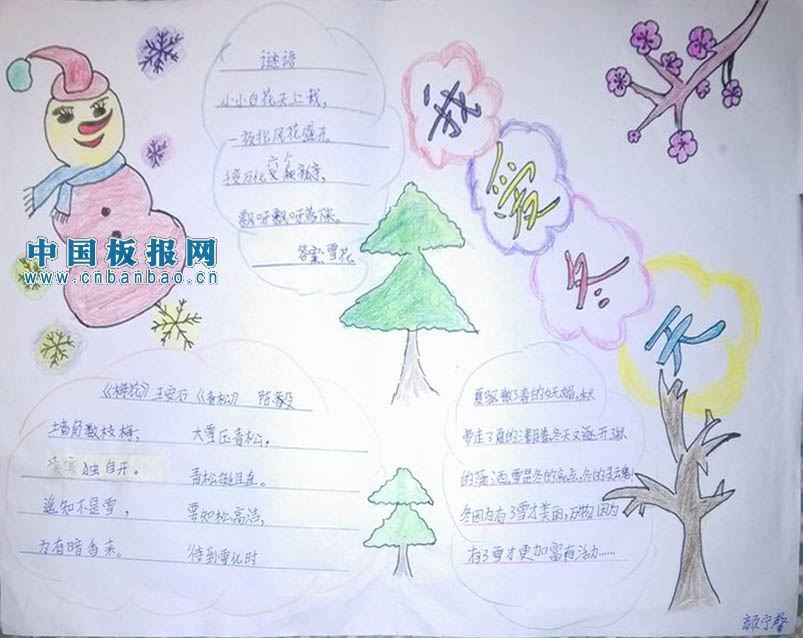 我爱冬天
谜语
小小白花天上栽,
一夜北风花盛开。
千变万化六个瓣,
飘呀飘呀落
答案:雪花
中国板报网
www.cnbanbao.cn
《梅花》王安石《青松》 陈毅
墙角数枝梅, 大雪压青松。
独自开。 青松挺且
遥知不是雪, 要知松高洁,
为有暗香来。 待到雪化时
夏驱散了春的妩媚,秋
带走了夏的 冬天又逐开了秋
的 洒,雪是冬的亮点,冬的灵魂,
冬因为有了雪才美丽,万物因为
有了雪才更加富有活力……
颜宁馨